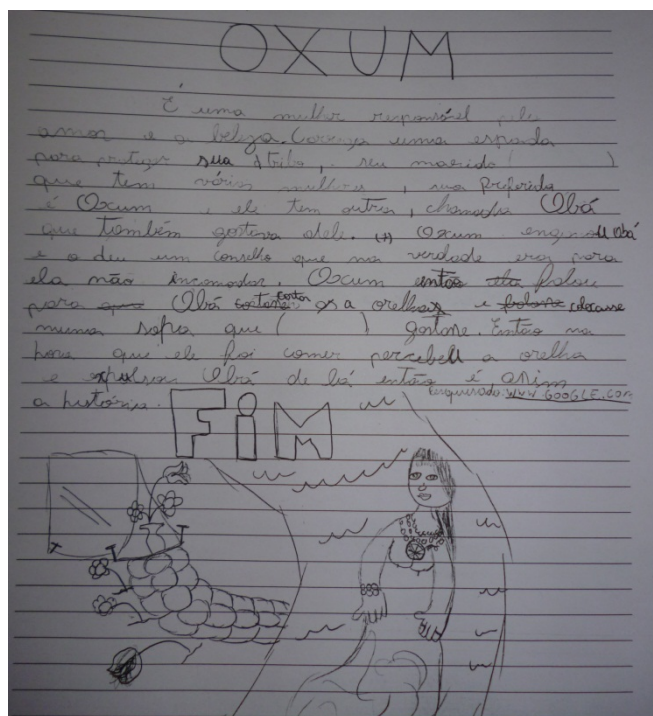 OXUM
É uma mulher responsável pelo
amor e a beleza. Carrega uma espada
para proteger sua tribo, seu marido ( )
que tem várias mulheres, sua Preferida
é Oxum e ele tem outra, chamada Obá
que também gostava dele. Oxum enganoU Obá
e a deu um conselho que na verdade era para
ela não incomodar. Oxum então ela falou
para que Obá cortar a orelha e colocasse
numa sopa que ( ) gostasse. Então na
hora que ele foi comer percebeU a orelha
e expulsou Obá de lá então é assim
a história. Pesquisado: WWW.GOOGLE.COM
FiM